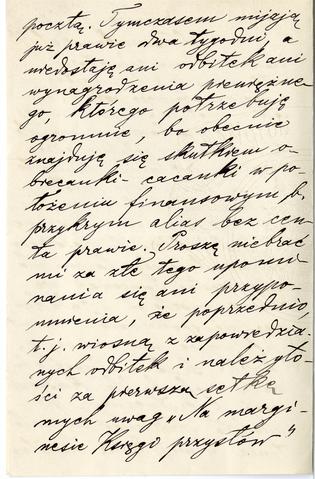 pocztą. Tymczasem mijają
już prawie dwa tygodni, a
niedostają ani odbitek ani
wynagrodzenia pieniężne-
go, którego potrzebują
ogromnie, bo obecnie
znajdują się skutkiem o-
biecanki-cacanki w po-
łożeniu finansowym b.
przykrym alias bez cen-
ta prawie. Proszę niebrać
mi za złe tego upomi
nania się ani przypo-
mnienia, że poprzednio,
t. j. wiosną z zapowiedzia-
nych odbitek i należyto-
ści za pierwszą setkę
mych uwag „Na margi-
nesie Księgi przysłów"